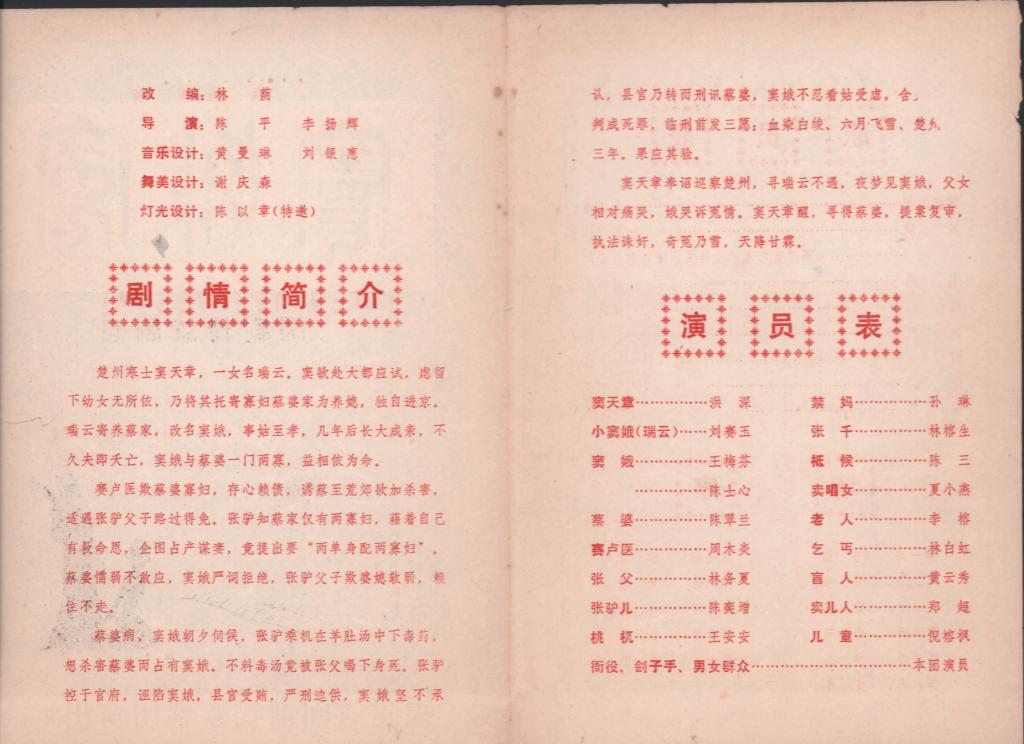 改　　编：林　　荫
导　　演：陈　平　　李扬辉
音乐设计：黄曼琳　　刘银惠
舞美设计：谢庆森
灯光设计：陈以章(特邀)
剧情简介
楚州寒士窦天章，一女名瑞云。窦欲赴大都应试，虑留
下幼女无所依，乃将其托寄寡妇蔡婆家为养媳，独自进京。
瑞云寄养蔡家，改名窦娥，事姑至孝，几年后长大成亲，不
久夫即夭亡，窦娥与蔡婆一门两寡，益相依为命。
赛卢医欺蔡婆寡妇，存心赖债，诱蔡至荒郊欲加杀害，
适遇张驴父子路过得免。张驴知蔡家仅有两寡妇，藉着自己
有救命恩，企图占产谋妻，竟提出要“两单身配两寡妇”。
蔡婆懦弱不敢应，窦娥严词拒绝，张驴父子欺婆媳软弱，赖
住不走。
蔡婆病，窦娥朝夕伺侯，张驴乘机在羊肚汤中下毒药，
想杀害蔡婆而占有窦娥。不料毒汤竟被张父喝下身死。张驴
控于官府，诬陷窦娥，县官受贿，严刑迫供，窦娥坚不承
认，县官乃转而刑讯蔡婆，窦娥不忍看姑受虐，含
判成死罪，临刑前发三愿：血染白绫、六月飞雪、楚州
三年。果应其验。
窦天章奉诏巡察楚州，寻瑞云不遇，夜梦见窦娥，父女
相对痛哭，娥哭诉冤情。窦天章醒，寻得蔡婆，提案复审，
执法诛奸，奇冤乃雪，天降甘霖。
演员表
窦天章……………洪　深　　禁　妈……………孙　琳
小窦娥(瑞云)……刘赛玉　　张　千……………林榕生
窦　娥……………王梅芬　　祗　候……………陈　三
……………陈士心　　卖唱女……………夏小燕
蔡　婆……………陈翠兰　　老　人……………李　榕
赛卢医……………周木炎　　乞　丐……………林白虹
张　父……………林务夏　　盲　人……………黄云秀
张驴儿……………陈奕增　　卖儿人……………郑　超
桃　杌……………王安安　　儿　童……………倪榕枫
衙役、刽子手、男女群众……………………………本团演员